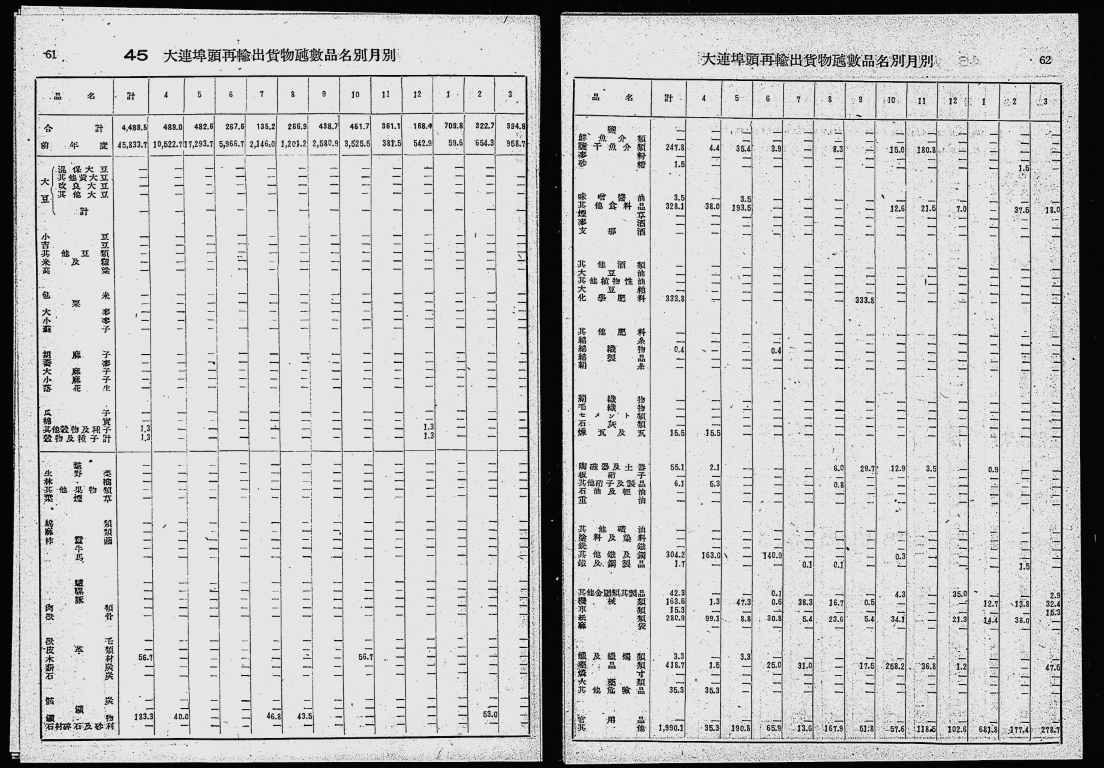 61
45 大連埠頭再輸出貨物瓲數品名別月別
品 名 計 4 5 6 7 8 9 10 11 12 1 2 3
合 計 4,488.5 489.0 482.6 267.6 135.2 266.9 438.7 451.7 381.1 168.4 709.8 322.7 394.8
前 年 度 45,833.7 10,522.7 17,293.7 5,966.7 2,146.0 1,201.2 2,580.9 3,525.5 382.5 542.9 59.6 654.3 958.7
大豆
混保大豆 — — — — — — — — — — — — —
其他黃大豆 — — — — — — — — — — — — —
改良大豆 — — — — — — — — — — — — —
其他大豆 — — — — — — — — — — — — —
計 — — — — — — — — — — — — —
小豆 — — — — — — — — — — — — —
吉豆 — — — — — — — — — — — — —
其他豆類 — — — — — — — — — — — — —
米及籾 — — — — — — — — — — — — —
高粱 — — — — — — — — — — — — —
包米 — — — — — — — — — — — — —
粟 — — — — — — — — — — — — —
大麥 — — — — — — — — — — — — —
小麥 — — — — — — — — — — — — —
蘇子 — — — — — — — — — — — — —
胡麻子 — — — — — — — — — — — — —
蕎麥 — — — — — — — — — — — — —
大麻子 — — — — — — — — — — — — —
小麻子 — — — — — — — — — — — — —
落花生 — — — — — — — — — — — — —
瓜子 — — — — — — — — — — — — —
棉實 — — — — — — — — — — — — —
其他穀物及種子 1.3 — — — — — — — — 1.3 — — —
穀物及種子計 1.3 — — — — — — — — 1.3 — — —
生野菜 — — — — — — — — — — — — —
林檎 — — — — — — — — — — — — —
其他果物類 — — — — — — — — — — — — —
葉煙草 — — — — — — — — — — — — —
綿類 — — — — — — — — — — — — —
麻類 — — — — — — — — — — — — —
柞蠶繭 — — — — — — — — — — — — —
牛 — — — — — — — — — — — — —
馬 — — — — — — — — — — — — —
驢 — — — — — — — — — — — — —
騾 — — — — — — — — — — — — —
豚 — — — — — — — — — — — — —
肉類 — — — — — — — — — — — — —
骨 — — — — — — — — — — — — —
毛 — — — — — — — — — — — — —
皮革類 — — — — — — — — — — — — —
木材 56.7 — — — — — — 56.7 — — — — —
薪炭 — — — — — — — — — — — — —
石炭 — — — — — — — — — — — — —
骸炭 — — — — — — — — — — — — —
鑛物 183.3 40.0 — — 46.8 43.5 — — — — — 53.0 —
石材碎石及砂利 — — — — — — — — — — — — —
大連埠頭再輸出貨物瓲數品名別月別
62
品 名 計 4 5 6 7 8 9 10 11 12 1 2 3
鹽 — — — — — — — — — — — — —
鮮魚介類 — — — — — — — — — — — — —
鹽干魚介類 247.8 4.4 35.4 3.9 — 8.3 — 15.0 180.8 — — — —
麥粉 — — — — — — — — — — — — —
砂糖 1.5 — — — — — — — — — — 1.5 —
味噌醬油 3.5 — 3.5 — — — — — — — — — —
其他食料品 328.1 38.0 193.5 — — — — 12.6 21.5 7.0 — 37.5 18.0
煙草 — — — — — — — — — — — — —
麥酒 — — — — — — — — — — — — —
支那酒 — — — — — — — — — — — — —
其他酒類 — — — — — — — — — — — — —
大豆油 — — — — — — — — — — — — —
其他植物性油 — — — — — — — — — — — — —
大豆粕 — — — — — — — — — — — — —
化學肥料 333.8 — — — — — 333.8 — — — — — —
其他肥料 — — — — — — — — — — — — —
綿糸 — — — — — — — — — — — — —
綿織物 0.4 — — 0.4 — — — — — — — — —
綿製品 — — — — — — — — — — — — —
絹糸 — — — — — — — — — — — — —
絹織物 — — — — — — — — — — — — —
毛織物 — — — — — — — — — — — — —
セメント類 — — — — — — — — — — — — —
石灰類 — — — — — — — — — — — — —
煉瓦及瓦 15.5 15.5 — — — — — — — — — — —
陶磁器及土器 55.1 2.1 — — — 6.0 29.7 12.9 3.5 — 0.9 — —
板硝子 — — — — — — — — — — — — —
其他硝子及製品 6.1 5.3 — — — 0.8 — — — — — — —
石油及輕油 — — — — — — — — — — — — —
重油 — — — — — — — — — — — — —
其他礦油 — — — — — — — — — — — — —
塗料及染料 — — — — — — — — — — — — —
銑鐵 — — — — — — — — — — — — —
其他鐵及鋼 304.2 163.0 — 140.9 — — — 0.3 — — — — —
鐵及鋼製品 1.7 — — — 0.1 0.1 — — — — — 1.5 —
其他金屬類其製品 42.3 — — 0.1 — — — 4.3 — 35.0 — — 2.9
機械類 163.6 1.3 47.3 0.6 38.3 16.7 0.5 — — — 12.7 13.8 32.4
車類 15.3 — — — — — — — — — — — 15.3
紙類 280.9 99.1 8.8 30.8 5.4 23.6 5.4 34.1 — 21.3 14.4 38.0 —
麻袋 — — — — — — — — — — — — —
蠟及蠟燭類 3.3 — 3.3 — — — — — — — — — —
藥品類 418.7 1.5 — 25.0 31.0 — 17.5 258.2 36.8 1.2 — — 47.5
燐寸 — — — — — — — — — — — — —
火藥類 — — — — — — — — — — — — —
其他危險品 35.3 35.3 — — — — — — — — — — —
官用品 — — — — — — — — — — — — —
其他 1,990.1 35.3 190.8 65.9 13.6 167.9 51.8 57.6 118.5 102.6 681.8 177.4 278.7